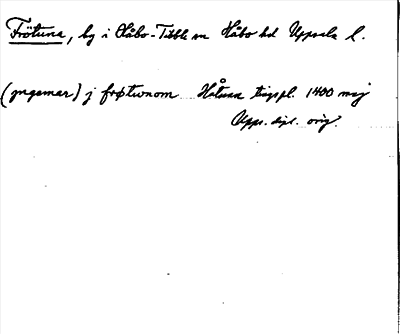 Frötuna, by i Håbo-Tibble sn Håbo hd Uppsala l.
(yngemar) j frøtwnom Håtuna tingspl. 1400 maj
Upps. dipl. orig.